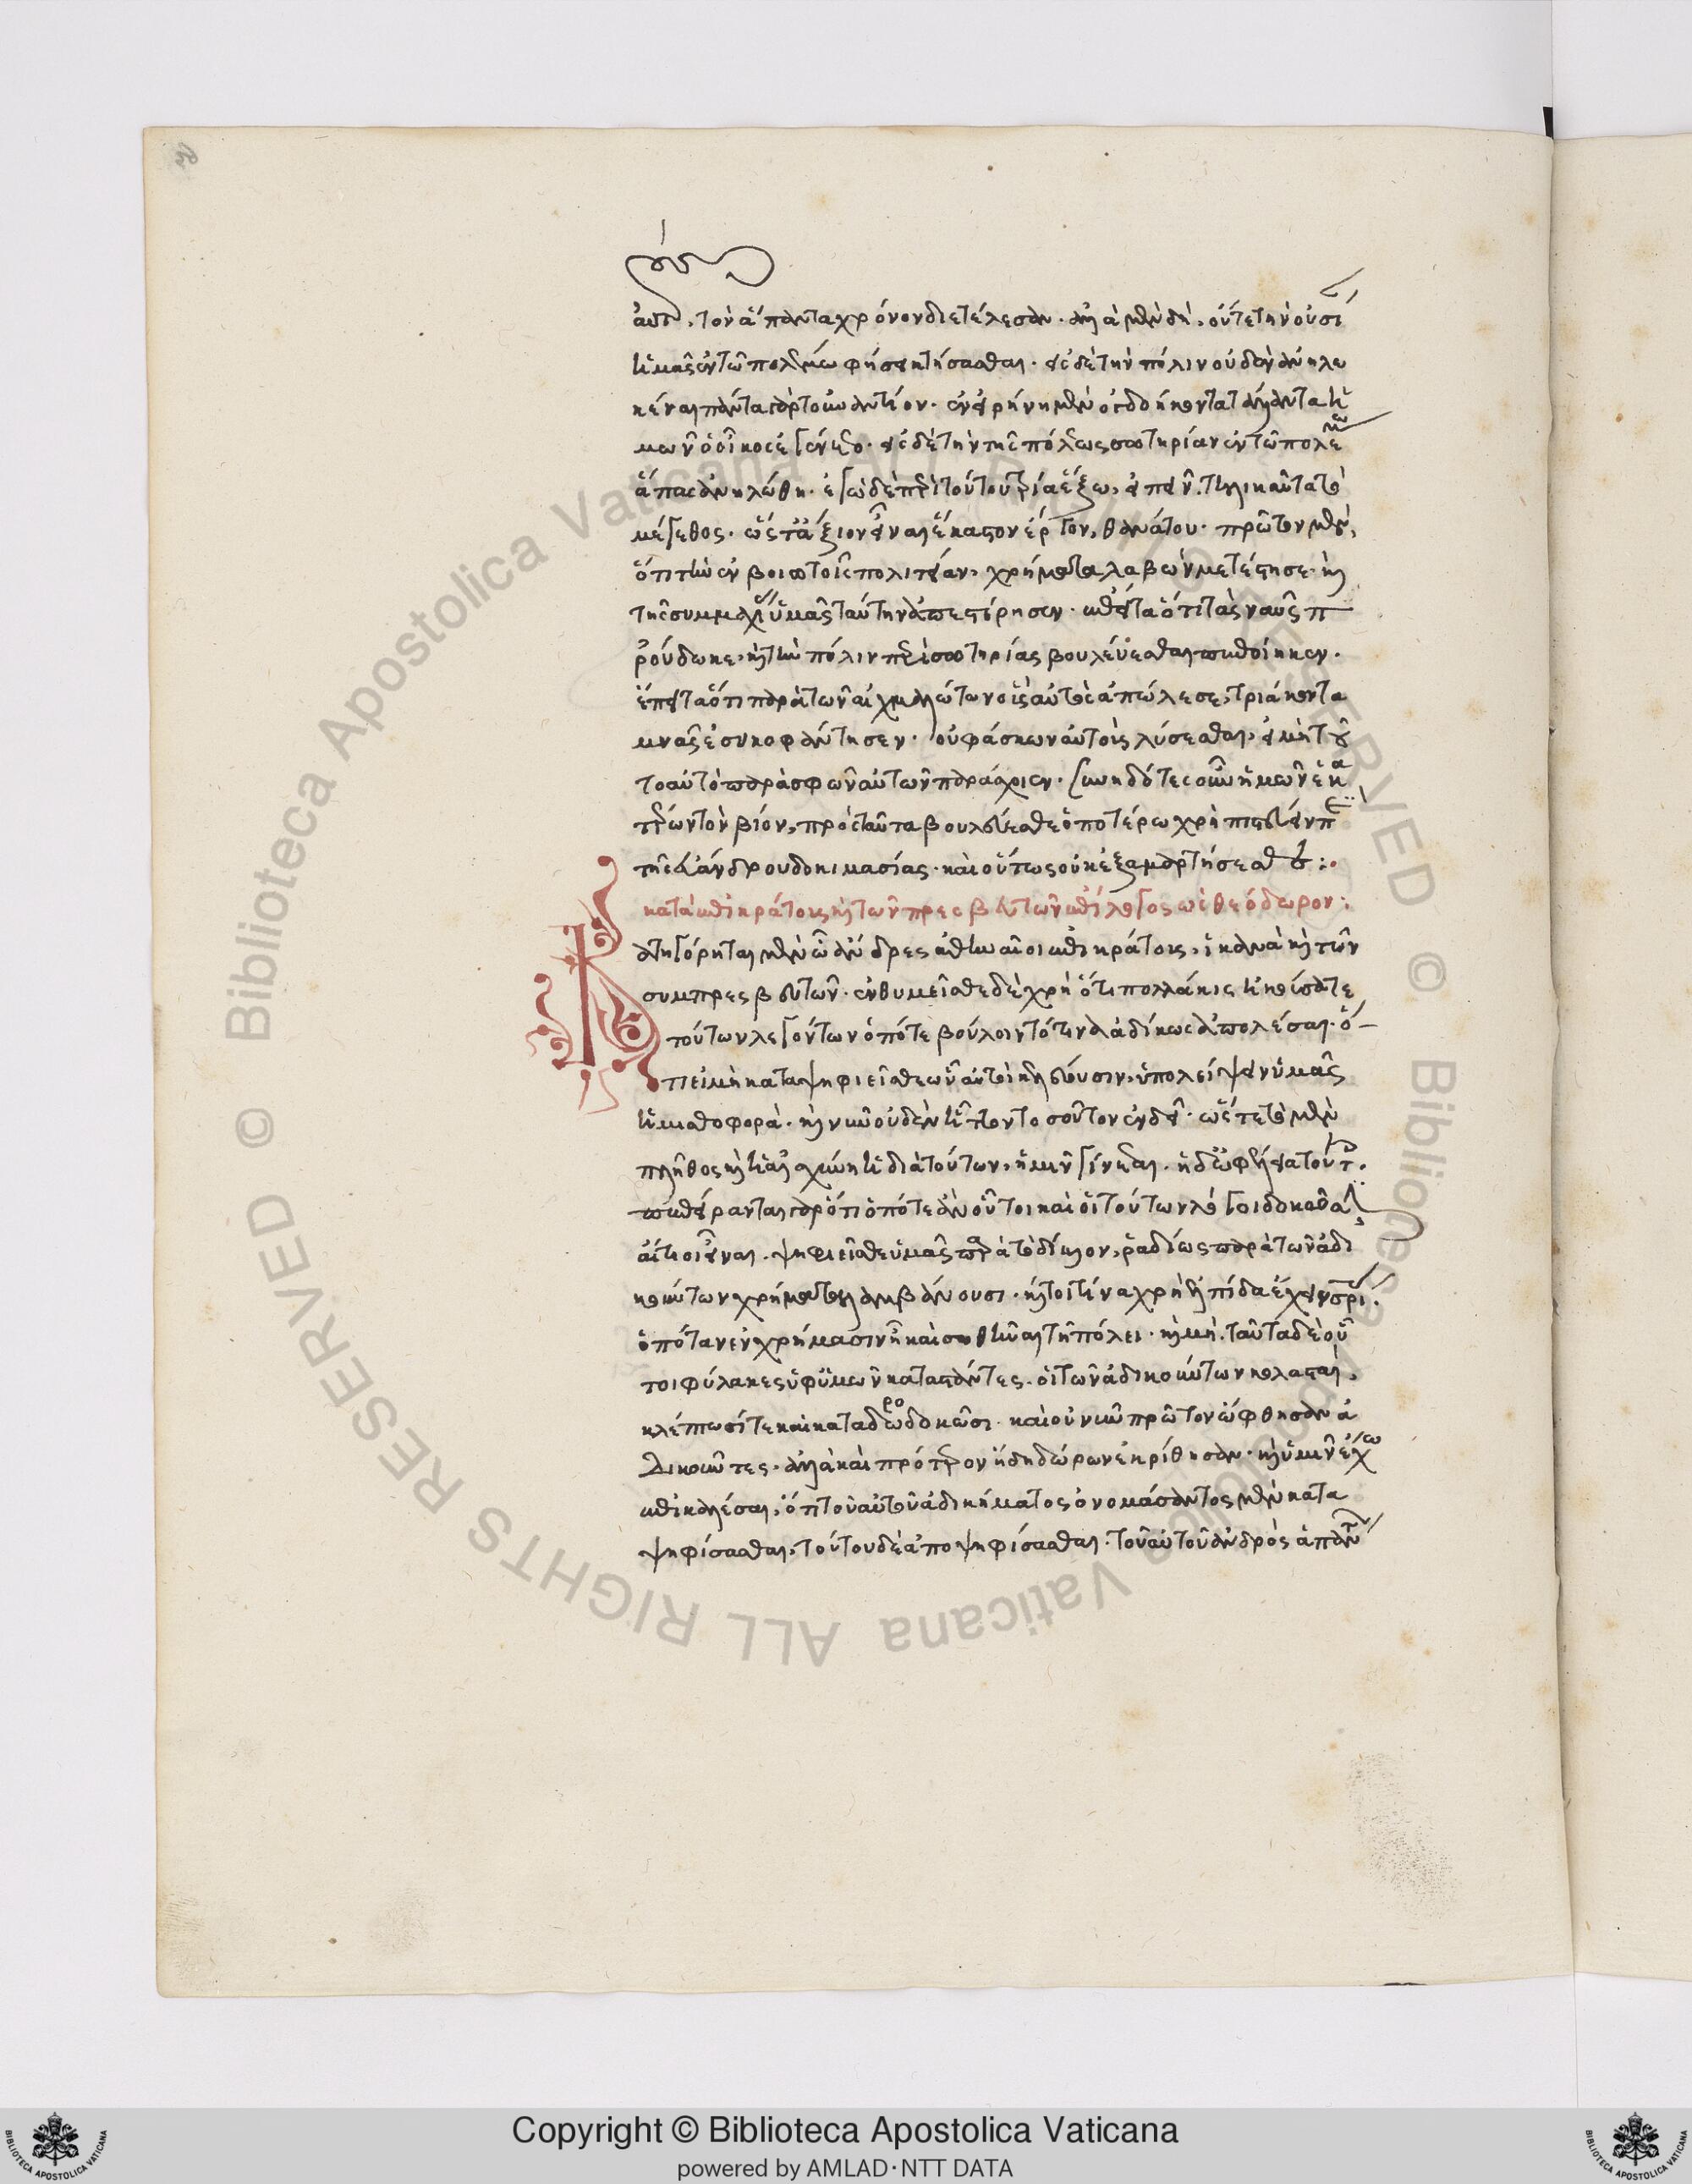 αὐτοῦ
αὐτῷ. τὸν ἅπαντα χρόνον διετέλεσαν. ἀλλὰ μὲν δὴ, οὔτε τὴν οὐσίαν
ἡμᾶς ἐν τῷ πολέμῳ φήσει κτήσασθαι. εἰς δὲ τὴν πόλιν οὐδὲν ἀνηλω
κέναι πάντα γὰρ τοὐναντίον. ἐν εἰρήνη μὲν ὀγδοήκοντα τάλαντα ἡ
μῶν ὁ οἶκος ἐγένετο. εἰς δὲ τὴν τῆς πόλεως σωτηρίαν ἐν τῷ πολέμω
ἅπας ἀνηλώθη. ἐγὼ δὲ περὶ τούτου τρία ἕξω, εἰπεῖν. τηλικαῦτα τὸ
μέγεθος. ὥστ' ἄξιον εἶναι ἕκαστον ἔργον, θανάτου. πρῶτον μὲν,
ὅτι τὴν ἐν βοιωτοῖς πολιτείαν, χρήματα λαβὼν μετέστησε. καὶ
τῆς συμμαχίας ὑμᾶς ταύτην ἀπεστέρησεν. ἔπειτα ὅτι τὰς ναῦς π
ρούδωκε, καὶ τὴν πόλιν περὶ σωτηρίας βουλεύεσθαι πεποίηκεν.
ἔπειτα ὅτι παρὰ τῶν αἰχμαλώτων οἷς αὐτὸς ἀπώλεσε, τριάκοντα
μνᾶς ἐσυκοφάντησεν. οὐ φάσκων αὐτοὺς λύσεσθαι, εἰ μὴ τοῦ
το αὐτὸ παρὰ σφῶν αὐτῶν παράσχοιεν. συνειδότες οὖν ἡμῶν ἑκα
τέρων τὸν βίον, πρὸς ταῦτα βουλεύεσθε ὁποτέρω χρὴ πιστεύειν περὶ
τῆς εὐάνδρου δοκιμασίας. καὶ οὕτως οὐκ ἐξαμαρτήσεσθε:
κατὰ ἐπικράτους καὶ τῶν πρεσβευτῶν ἐπίλογος ὡς θεόδωρος:
Κατηγόρηται μὲν ὦ ἄνδρες ἀθηναῖοι ἐπικράτους, ἱκανὰ καὶ τῶν
συμπρεσβευτῶν. ἐνθυμεῖσθε δὲ χρὴ ὅτι πολλάκις ἠκούσατε
τούτων λεγόντων ὁπότε βούλοιντό τινα ἀδίκως ἀπολέσαι. ὅ
τι εἰ μὴ καταψηφιεῖσθε ὧν αὐτοὶ κελεύουσιν, ὑπολείψειν ὑμᾶς
ἡ μισθοφορά. καὶ νῦν οὐδὲν ἧττον τοσοῦτον ἐνδεῖ. ὥστε τὸ μὲν
πλῆθος καὶ ἡ αἰσχύνη ἡ διὰ τούτων, ἡμῖν γίνεται. ἡ δ' ὠφέλεια τούτοις.
πεπείρανται γὰρ ὅτι ὁπότε ἂν οὗτοι καὶ οἱ τούτων λόγοι δοκοῦσι
αἴτιοι εἶναι. ψηφιεῖσθε ὑμᾶς παρὰ τὸ δίκαιον, ῥαδίως παρὰ τῶν ἀδι
κούντων χρήματα λαμβάνουσι. καί τοι τίνα χρὴ ἐλπίδα ἔχειν σωτηρίας.
ὁπόταν ἐν χρήμασιν ἦ καὶ σωθῆναι τῆ πόλει. καὶ μή. ταῦτα δὲ οὗ
τοι φύλακες ὑφ' ὑμῶν καταστάντες. οἱ τῶν ἀδικούντων κολασταί,
κλέπτωσί τε καὶ καταδωροδοκῶσι. καὶ οὐ νῦν πρῶτον ὤφθησαν ἀ
δικοῦντες. ἀλλὰ καὶ πρότερον ἤδη δώρων ἐκρίθησαν. καὶ ὑμῖν ἔχω
ἐπικαλέσαι, ὅτι τοῦ αὐτοῦ ἀδικήματος ὀνομάσαντος μὲν κατα
ψηφίσασθαι, τούτου δὲ ἀποψηφίσασθαι. τοῦ αὐτοῦ ἀνδρὸς ἁπάν